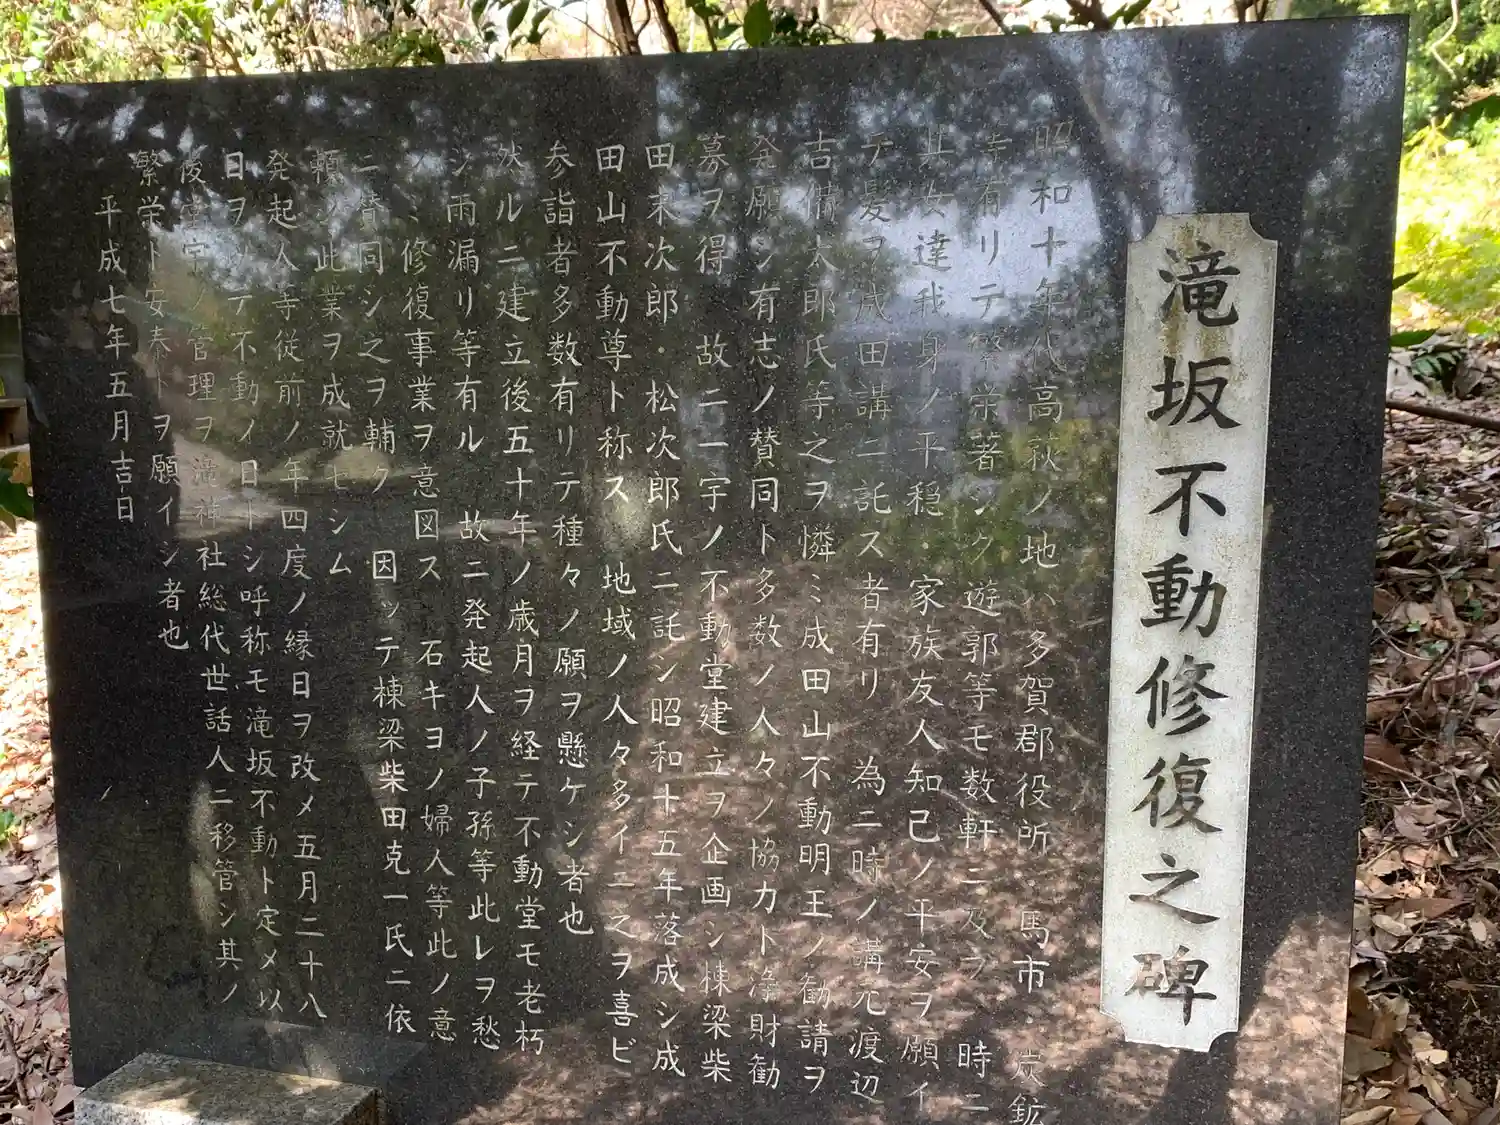 滝坂不動修復之碑
昭和十年代高萩ノ地ハ多賀郡役所・馬市・炭鉱
等有リテ繁栄著シク 遊郭等モ数軒ニ及ブ 時ニ
其女達我身ノ平穏・家族友人知己ノ平安ヲ願イ
テ髪ヲ成田講ニ託ス者有リ 為ニ時ノ講元渡辺
吉備太郎氏等之ヲ憐ミ成田山不動明王ノ勧請ヲ
発願シ有志ノ賛同ト多数ノ人々ノ協力ト浄財勧
募ヲ得 故ニ一宇ノ不動堂建立ヲ企画シ棟梁柴
田末次郎・松次郎氏ニ託シ昭和十五年落成シ成
田山不動尊ト称ス 地域ノ人々多イニ之ヲ喜ビ
参詣者多数有リテ種々ノ願ヲ懸ケシ者也
然ルニ建立後五十年ノ歳月ヲ経テ不動堂モ老朽
シ雨漏リ等有ル 故ニ発起人ノ子孫等此レヲ愁
ノミ修復事業ヲ意図ス 石キヨノ婦人等此ノ意
ニ賛同シ之ヲ輔ク 因ッテ棟梁柴田克一氏ニ依
頼シ此業ヲ成就セシム
発起人等従前ノ年四度ノ縁日ヲ改メ五月二十八
日ヲ以テ不動ノ日トシ呼称モ滝坂不動ト定メ以
後堂宇ノ管理ヲ滝神社総代世話人ニ移管シ其ノ
繁栄ト安泰トヲ願イシ者也
平成七年五月吉日